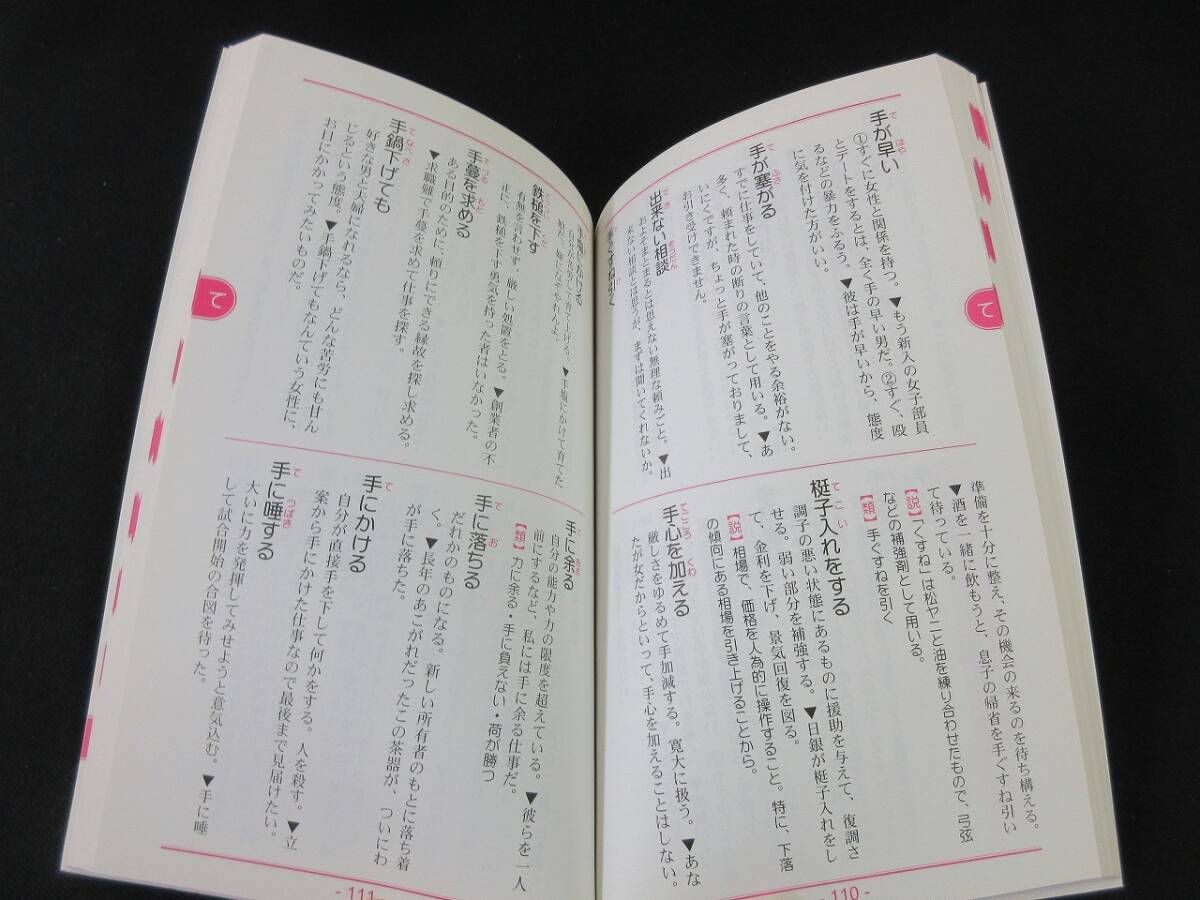 て
手が早い
①すぐに女性と関係を持つ。▼もう新入の女子部員
とデートをするとは、全く手の早い男だ。②すぐ、殴
るなどの暴力をふるう。▼彼は手が早いから、態度
に気を付けた方がいい。
手が塞がる
すでに仕事をしていて、他のことをやる余裕がない。
多く、頼まれた時の断りの言葉として用いる。▼あ
いにくですが、ちょっと手が塞がっておりまして、
お引き受けできません。
出来ない相談
およそまとまるとは思えない無理な頼みごと。▼出
来ない相談とは思うが、まずは聞いてくれないか。
準備を十分に整え、その機会の来るのを待ち構える。
▼酒を一緒に飲もうと、息子の帰省を手ぐすね引い
て待っている。
【説】「くすね」は松ヤニと油を練り合わせたもので、弓弦
などの補強剤として用いる。
【類】手ぐすねを引く
梃子入れをする
調子の悪い状態にあるものに援助を与えて、復調さ
せる。弱い部分を補強する。▼日銀が梃子入れをし
て、金利を下げ、景気回復を図る。
【説】相場で、価格を人為的に操作すること。特に、下落
の傾向にある相場を引き上げることから。
手心を加える
厳しさをゆるめて手加減する。寛大に扱う。▼あな
たが女だからといって、手心を加えることはしない。
- 110 -
て
鉄槌を下す
有無を言わせず、厳しい処置をとる。▼創業者の不
正に、鉄槌を下す勇気を持った者はいなかった。
手蔓を求める
ある目的のために、頼りにできる縁故を探し求める。
▼求職難で手蔓を求めて仕事を探す。
手鍋下げても
好きな男と夫婦になれるなら、どんな苦労にも甘ん
じるという態度。▼手鍋下げてもなんていう女性に、
お目にかかってみたいものだ。
手に余る
自分の能力や力の限度を超えている。▼彼らを一人
前にするなど、私には手に余る仕事だ。
【類】力に余る・手に負えない・荷が勝つ
手に落ちる
だれかのものになる。新しい所有者のもとに落ち着
く。▼長年のあこがれだったこの茶器が、ついにわ
が手に落ちた。
手にかける
自分が直接手を下して何かをする。人を殺す。▼立
案から手にかけた仕事なので最後まで見届けたい。
手に唾する
大いに力を発揮してみせようと意気込む。▼手に唾
して試合開始の合図を待った。
- 111 -